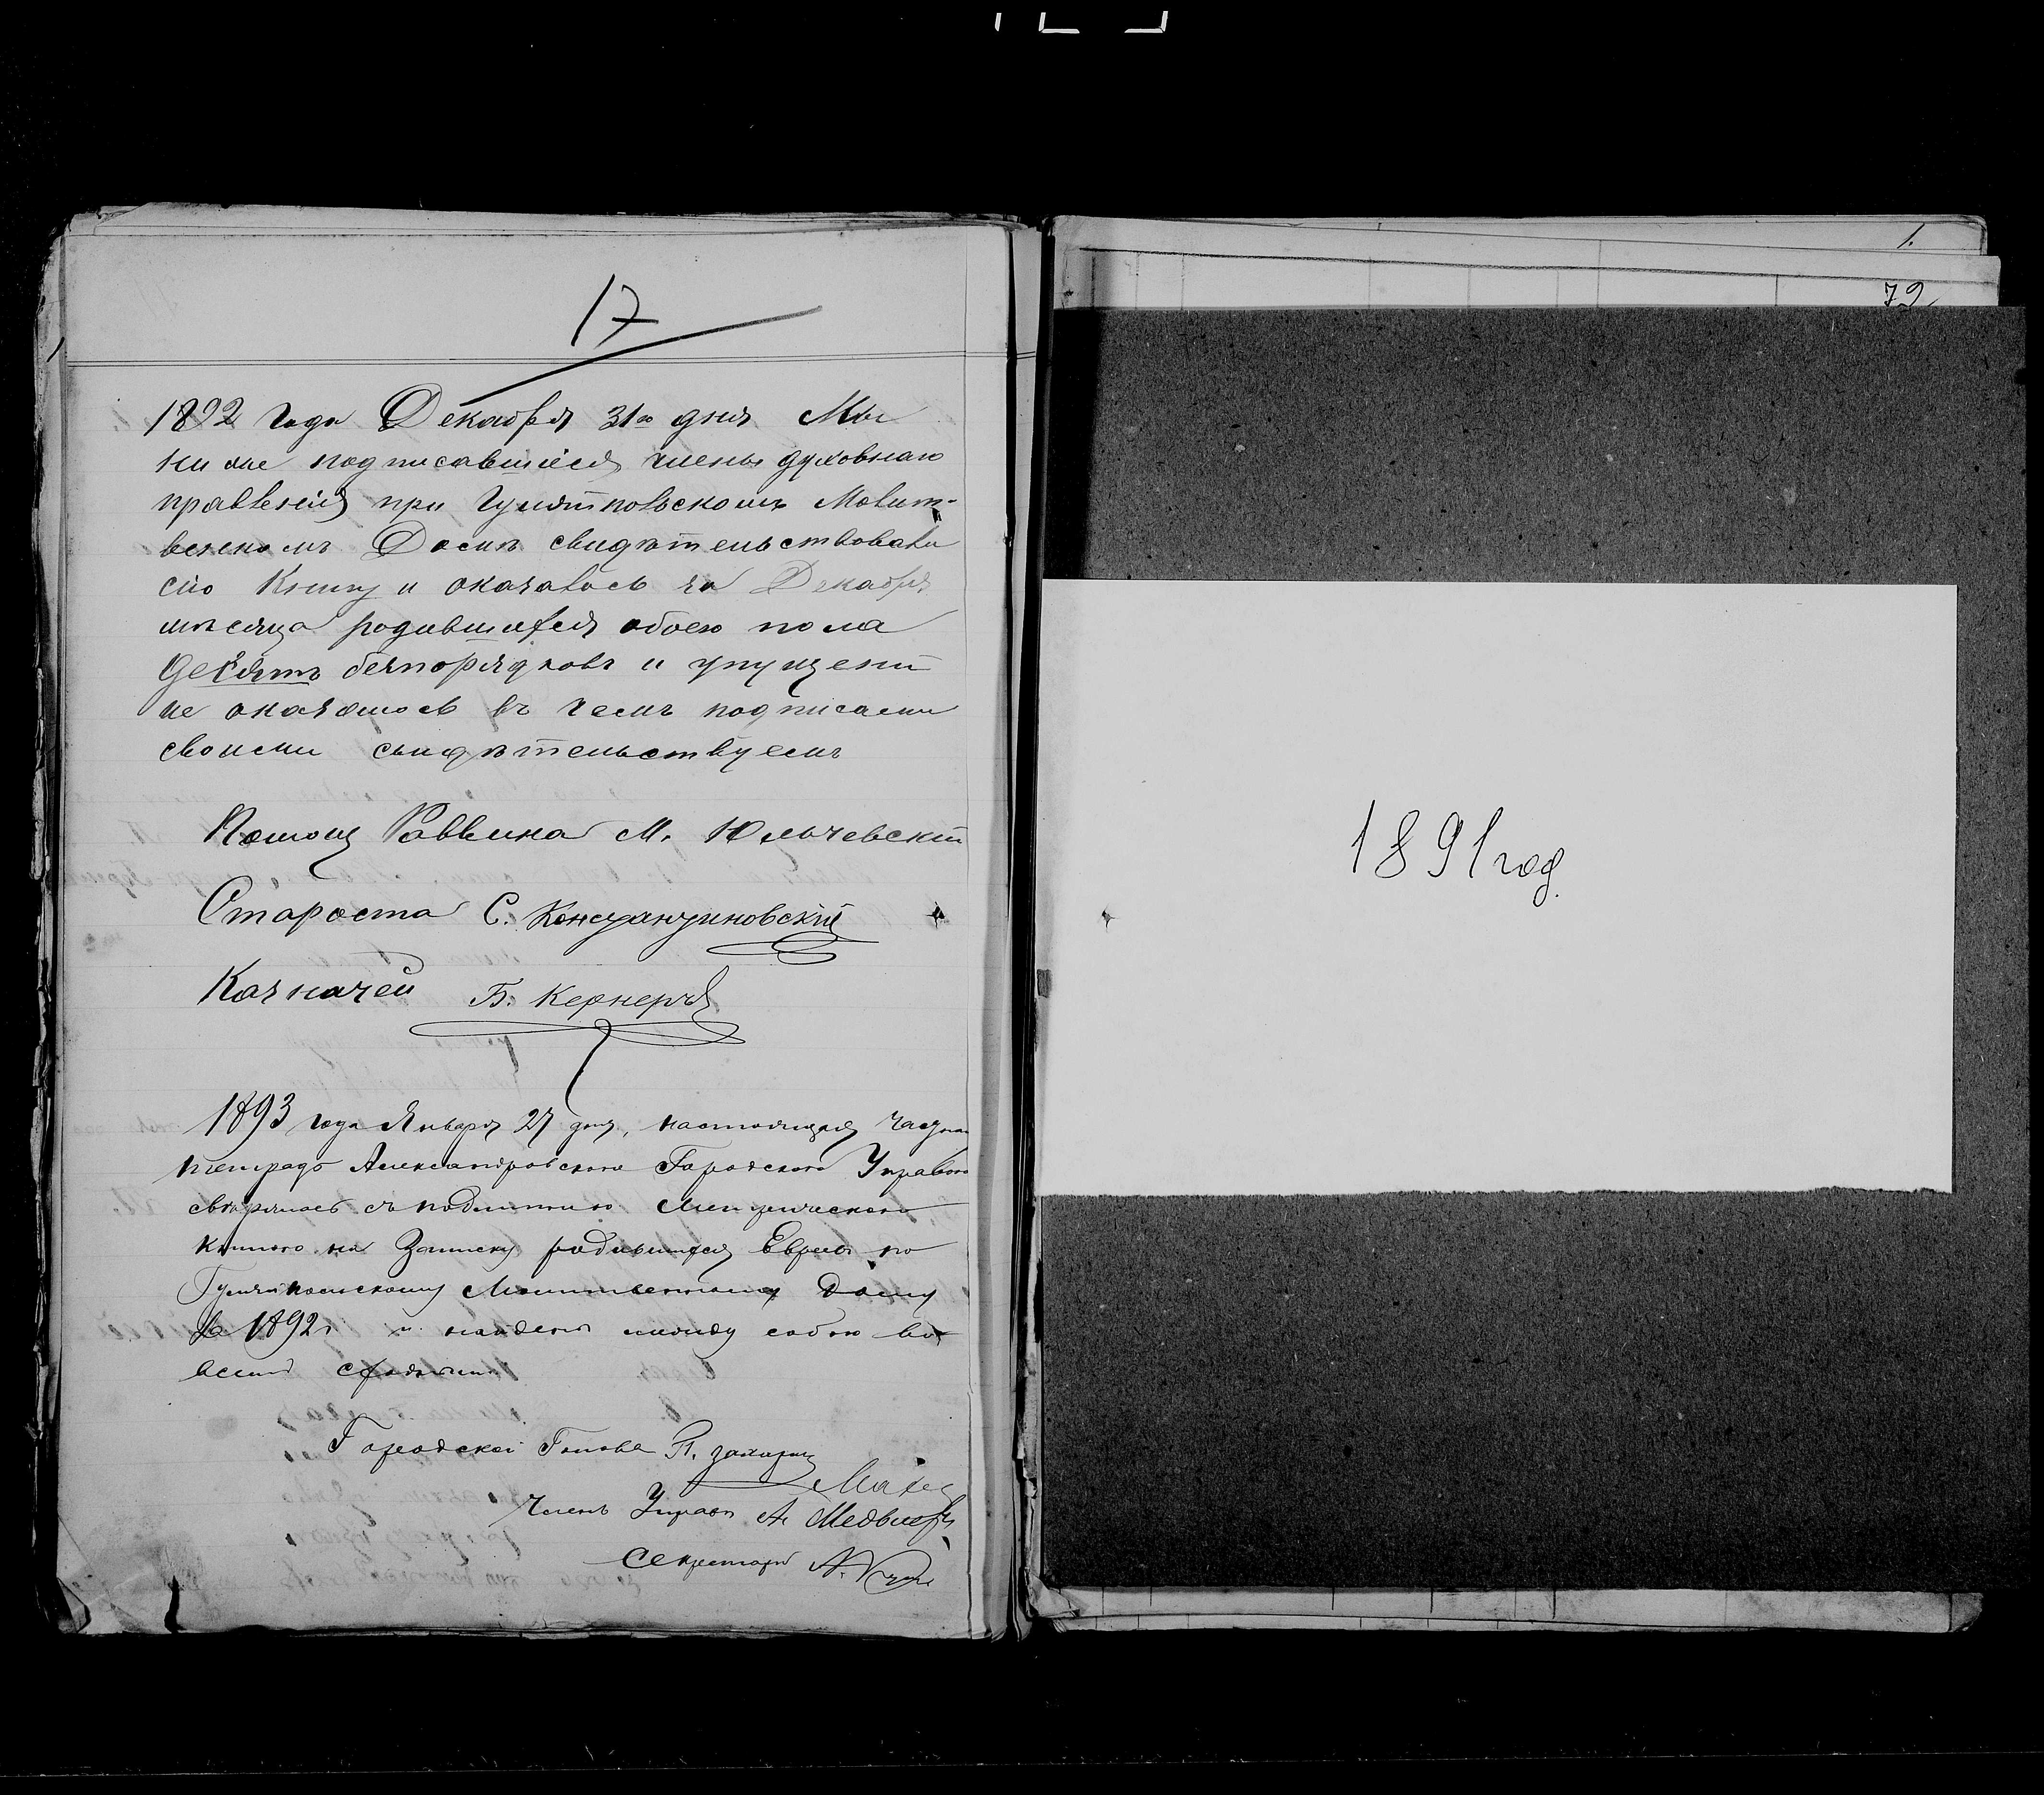 17
1892 года Декабря 31го дня Мы
ниже подписавшіеся члены духовнаго
правленія при Гуляйпольскомъ Молит-
венномъ Домѣ свидѣтельствовали
сію Книгу и оказалось за Декабрь
мѣсяцъ родившихся обоего пола
десять безпорядковъ и упущеній
не оказалось въ чемъ подписами
своими свидѣтельствуемъ
Помощ Раввина М.
Староста С. Константиновскій
Казначей Б. Кернеръ
1893 года Января 27 дня, настоящая
тетрадь Александровскою Городскою Управою
свѣрялась съ подлинною Метрическою
книгою на Записку родившихся Евреевъ по
Гуляйпольскому Молитвенному Дому
за 1892 г и найдена между собою во
всемъ сходною
Городской Голова
Членъ Управы А
Секретарь
1.
72
1891 год.